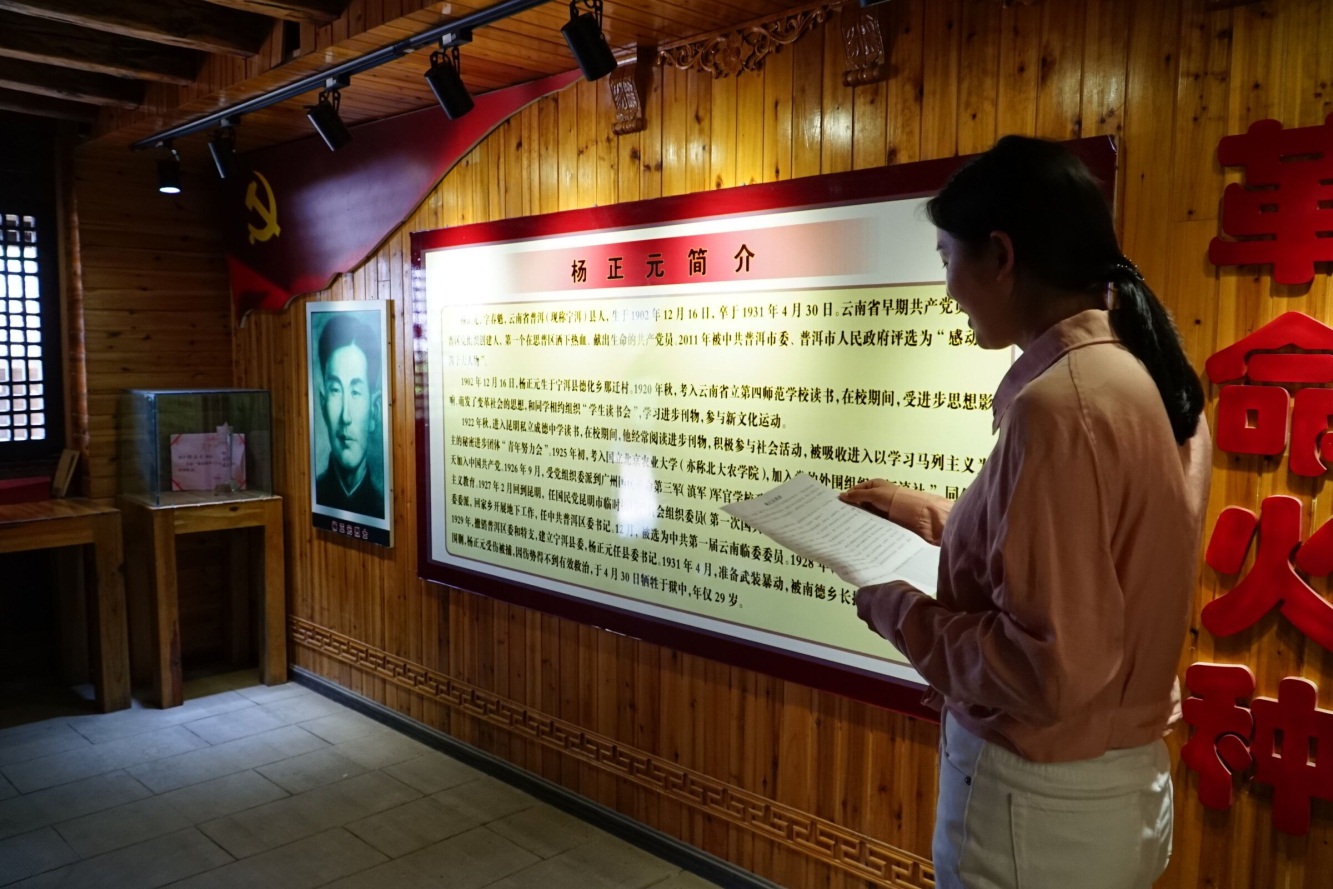 杨正元简介
字春魁，云南省普洱（现称宁洱）县人，生于1902年12月16日，卒于1931年4月30日。云南省早期共产党
创建人，第一个在思普区洒下热血、献出生命的共产党员。2011年被中共普洱市委、普洱市人民政府评选为“感动
人物”。
1902年12月16日，杨正元生于宁洱县德化乡那迁村。1920年秋，考入云南省立第四师范学校读书，在校期间，受进步思想影
响，萌发了变革社会的思想，和同学相约组织“学生读书会”，学习进步刊物，参与新文化运动。
1922年秋，进入昆明私立成德中学读书，在校期间，他经常阅读进步刊物，积极参与社会活动，被吸收进入以学习马列主义为
主的秘密进步团体“青年努力会”。1925年初，考入国立北京农业大学（亦称北大农学院），加入党的外围组织
天加入中国共产党。1926年9月，受党组织委派到广州国 第三军（滇军）军官学校
主义教育。1927年2月回到昆明，任国民党昆明市临时 会组织委员（第一次国
委委派，回家乡开展地下工作，任中共普洱区委书记。12月，被选为中共第一届云南临委委员。1928年
1929年，撤销普洱区委和特支，建立宁洱县委，杨正元任县委书记。1931年4月，准备武装暴动，被南德乡长
围捕，杨正元受伤被捕，因伤势得不到有效救治，于4月30日牺牲于狱中，年仅29岁。
革命火种